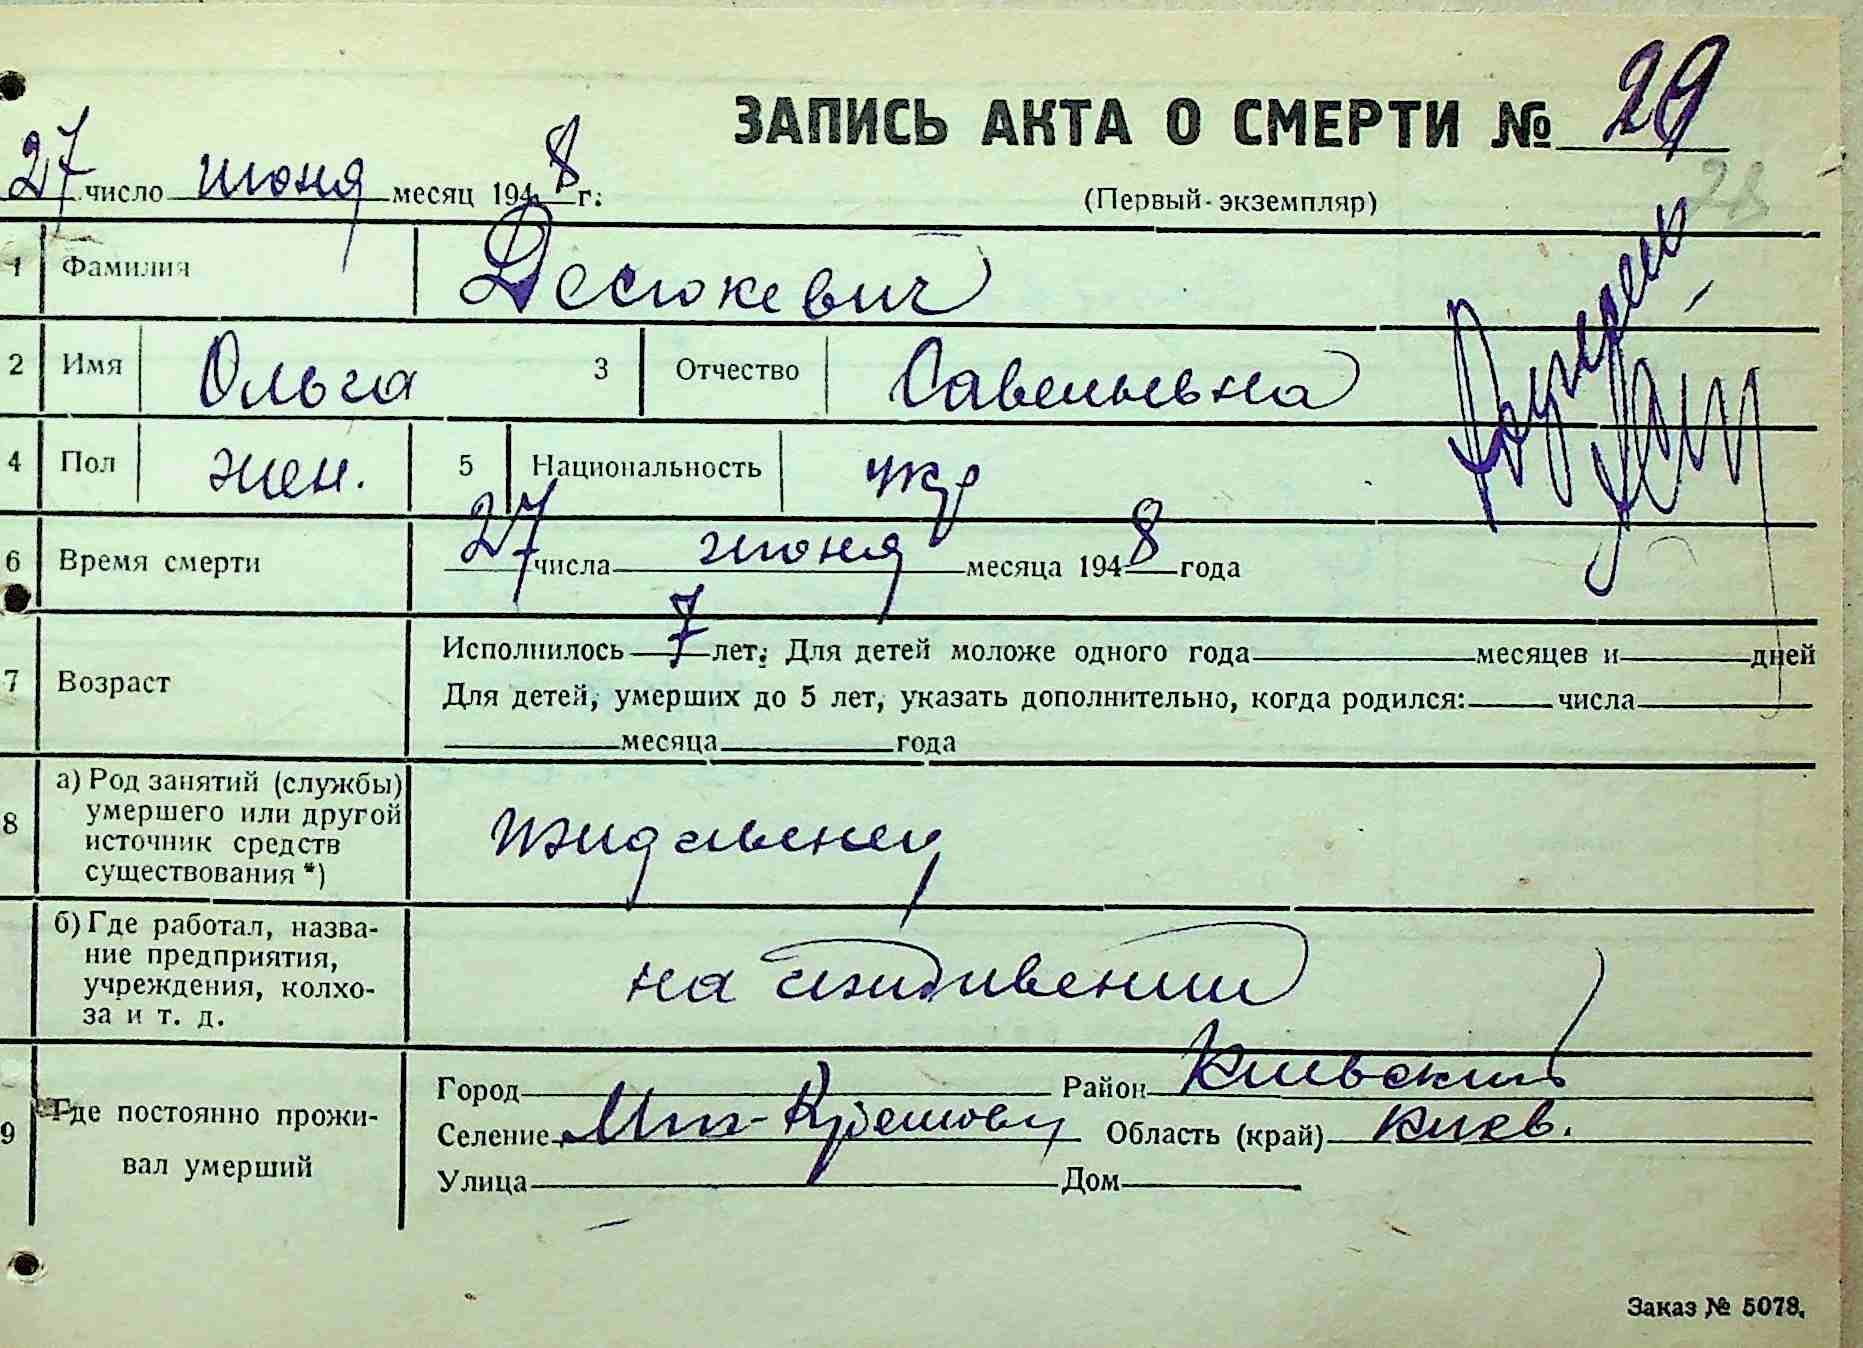 ЗАПИСЬ АКТА О СМЕРТИ № 29
28
27 число июня месяц 1948 г.
(Первый экземпляр)
1 Фамилия Десюкевич
2 Имя Ольга 3 Отчество Савельевна
4 Пол жен. 5 Национальность укр
6 Время смерти 27 числа июня месяца 1948 года
7 Возраст Исполнилось 7 лет. Для детей моложе одного года месяцев и дней
Для детей, умерших до 5 лет, указать дополнительно, когда родился: числа
месяца года
8 а) Род занятий (службы) умершего или другой источник средств существования *) иждивенец
б) Где работал, название предприятия, учреждения, колхоза и т. д. на иждивении
9 Где постоянно проживал умерший
Город Район Киевский
Селение Область (край) Киев.
Улица Дом
Заказ № 5078.